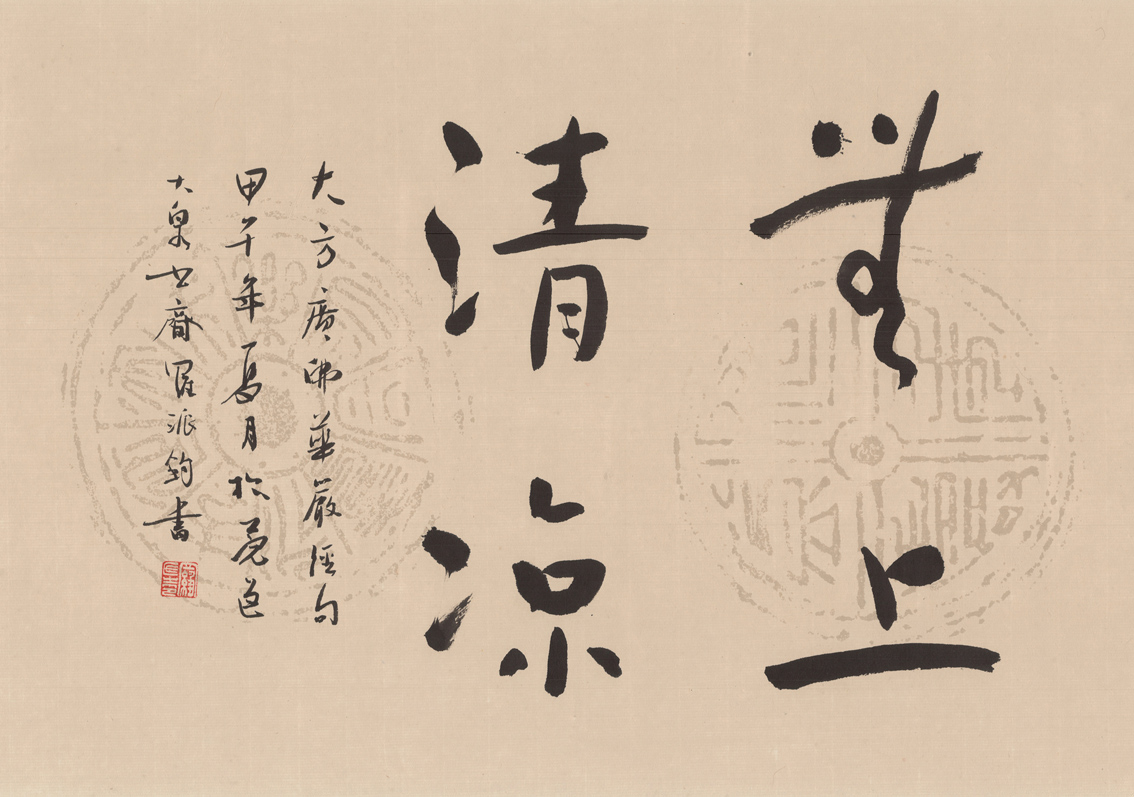 無上
清凉
大方廣佛華嚴經句
甲午年夏月於莞邑
大泉书齋羅派鈞書